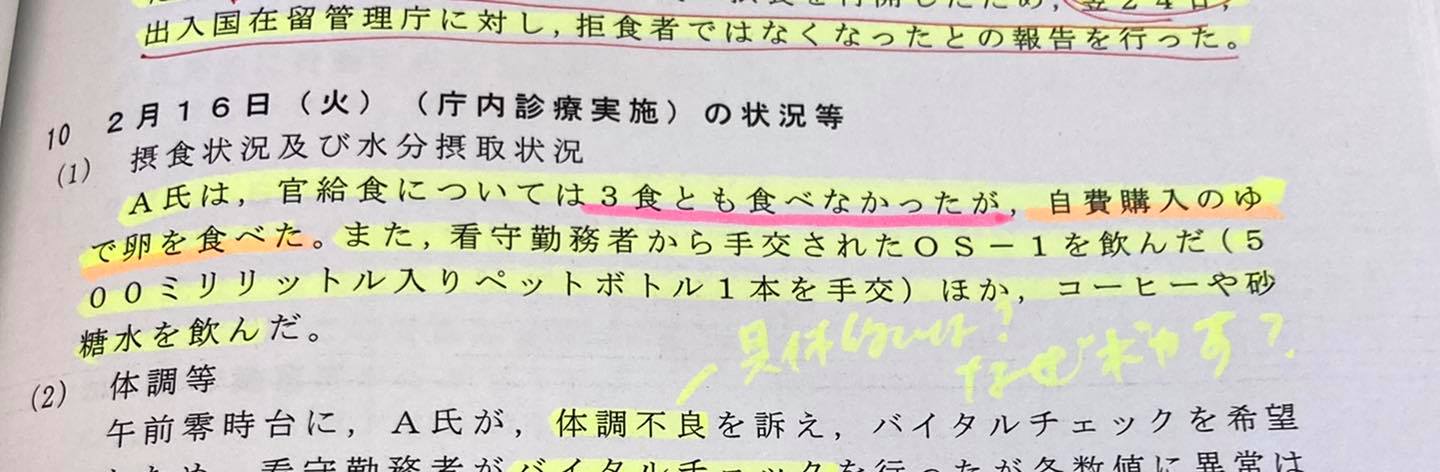 出入国在留管理庁に対し，拒食者ではなくなったとの報告を行った。
10　２月１６日（火）（庁内診療実施）の状況等
(1)　摂食状況及び水分摂取状況
Ａ氏は，官給食については３食とも食べなかったが，自費購入のゆ
で卵を食べた。また，看守勤務者から手交されたＯＳ－１を飲んだ（５
００ミリリットル入りペットボトル１本を手交）ほか，コーヒーや砂
糖水を飲んだ。
具体的には？
(2)　体調等
午前零時台に，Ａ氏が，体調不良を訴え，バイタルチェックを希望
看守勤務者がバイタルチェックを行ったが各数値に異常は